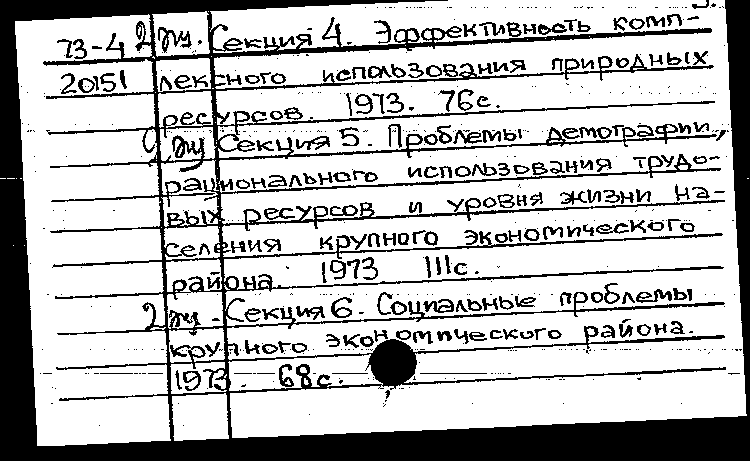 73-4 2 эк. Секция 4. Эффективность комп-
20151 лексного использования природных
ресурсов. 1973. 76с.
2 эк Секция 5. Проблемы демографии,
рационального использования трудо-
вых ресурсов и уровня жизни на-
селения крупного экономического
района. 1973 111с.
2 эк. Секция 6. Социальные проблемы
крупного экономического района.
1973. 68с.